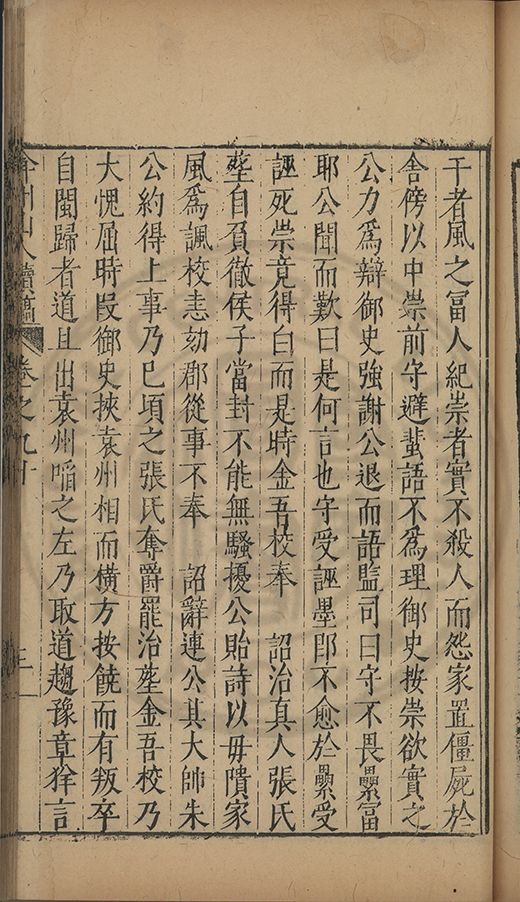 干者風之冨人紀崇者實不殺人而怨家置僵屍於
舎傍以中崇前守避蜚語不爲理御史按崇欲實之
公力爲辯御史強謝公退而語監司曰守不畏纍冨
耶公聞而歎曰是何言也守受誣學卽不愈於纍受
誣死崇竟得白而是時金吾校奉　詔治真人張氏
塋自貟徹侯子當封不能無騷擾公貽詩以毋隤家
風爲諷校恚劾郡從事不奉　詔辭連公其大帥朱
公約得上事乃巳頃之張氏奪爵罷治塋金吾校乃
大愧屈時叚御史挾袁州相而横方按饒而有叛卒
自閩歸者道且出袁州㗖之左乃取道趨豫章徉言
弇州山人續藁　卷之九十